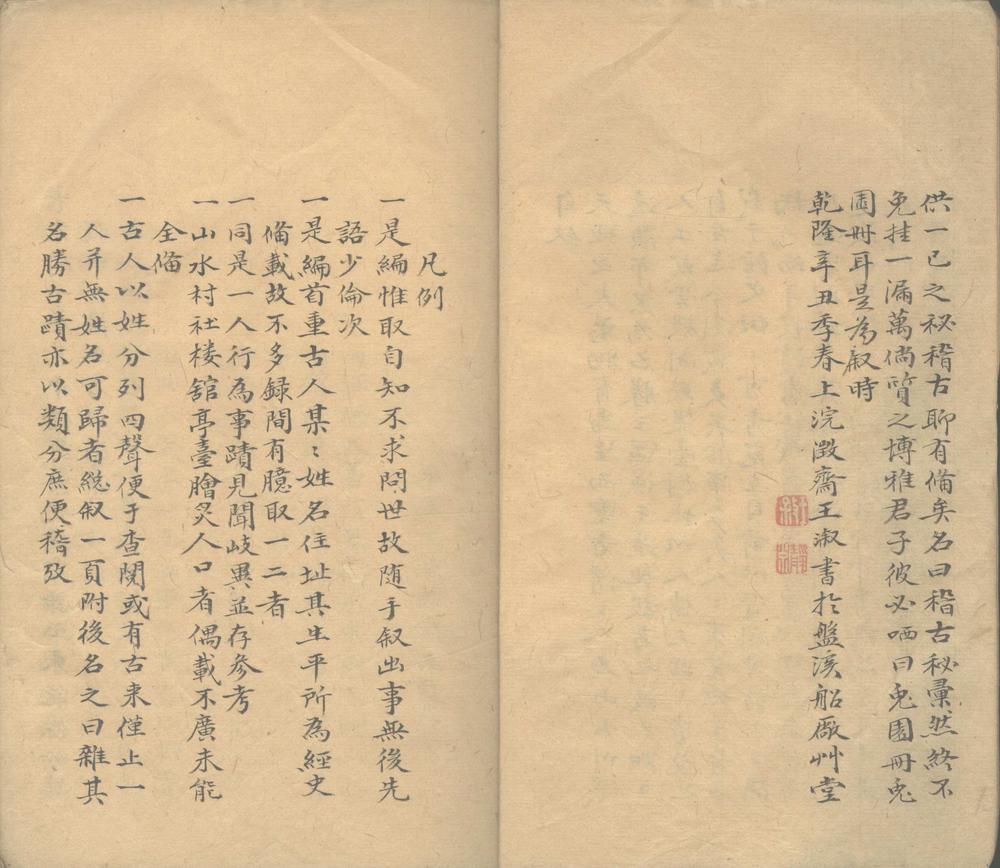 供一己之秘稽古聊有備矣名曰稽古秘彚然終不
免挂一漏萬倘質之博雅君子彼必哂曰兎園冊兎
園冊耳是為叙時
乾隆辛丑季春上浣澂齋王淑書於盤溪船廠艸堂
凡例
一是編惟取自知不求問世故随手叙出事無後先
語少倫次
一是編首重古人某〻姓名住址其生平所為經史
備載故不多録間有臆取一二者
一同是一人行為事蹟見聞岐異並存參考
一山水村社楼舘亭臺膾炙人口者偶載不廣未能
全備
一古人以姓分列四聲便于查閱或有古来僅止一
人并無姓名可歸者縂叙一頁附後名之曰雜其
名勝古蹟亦以類分庶便稽攷